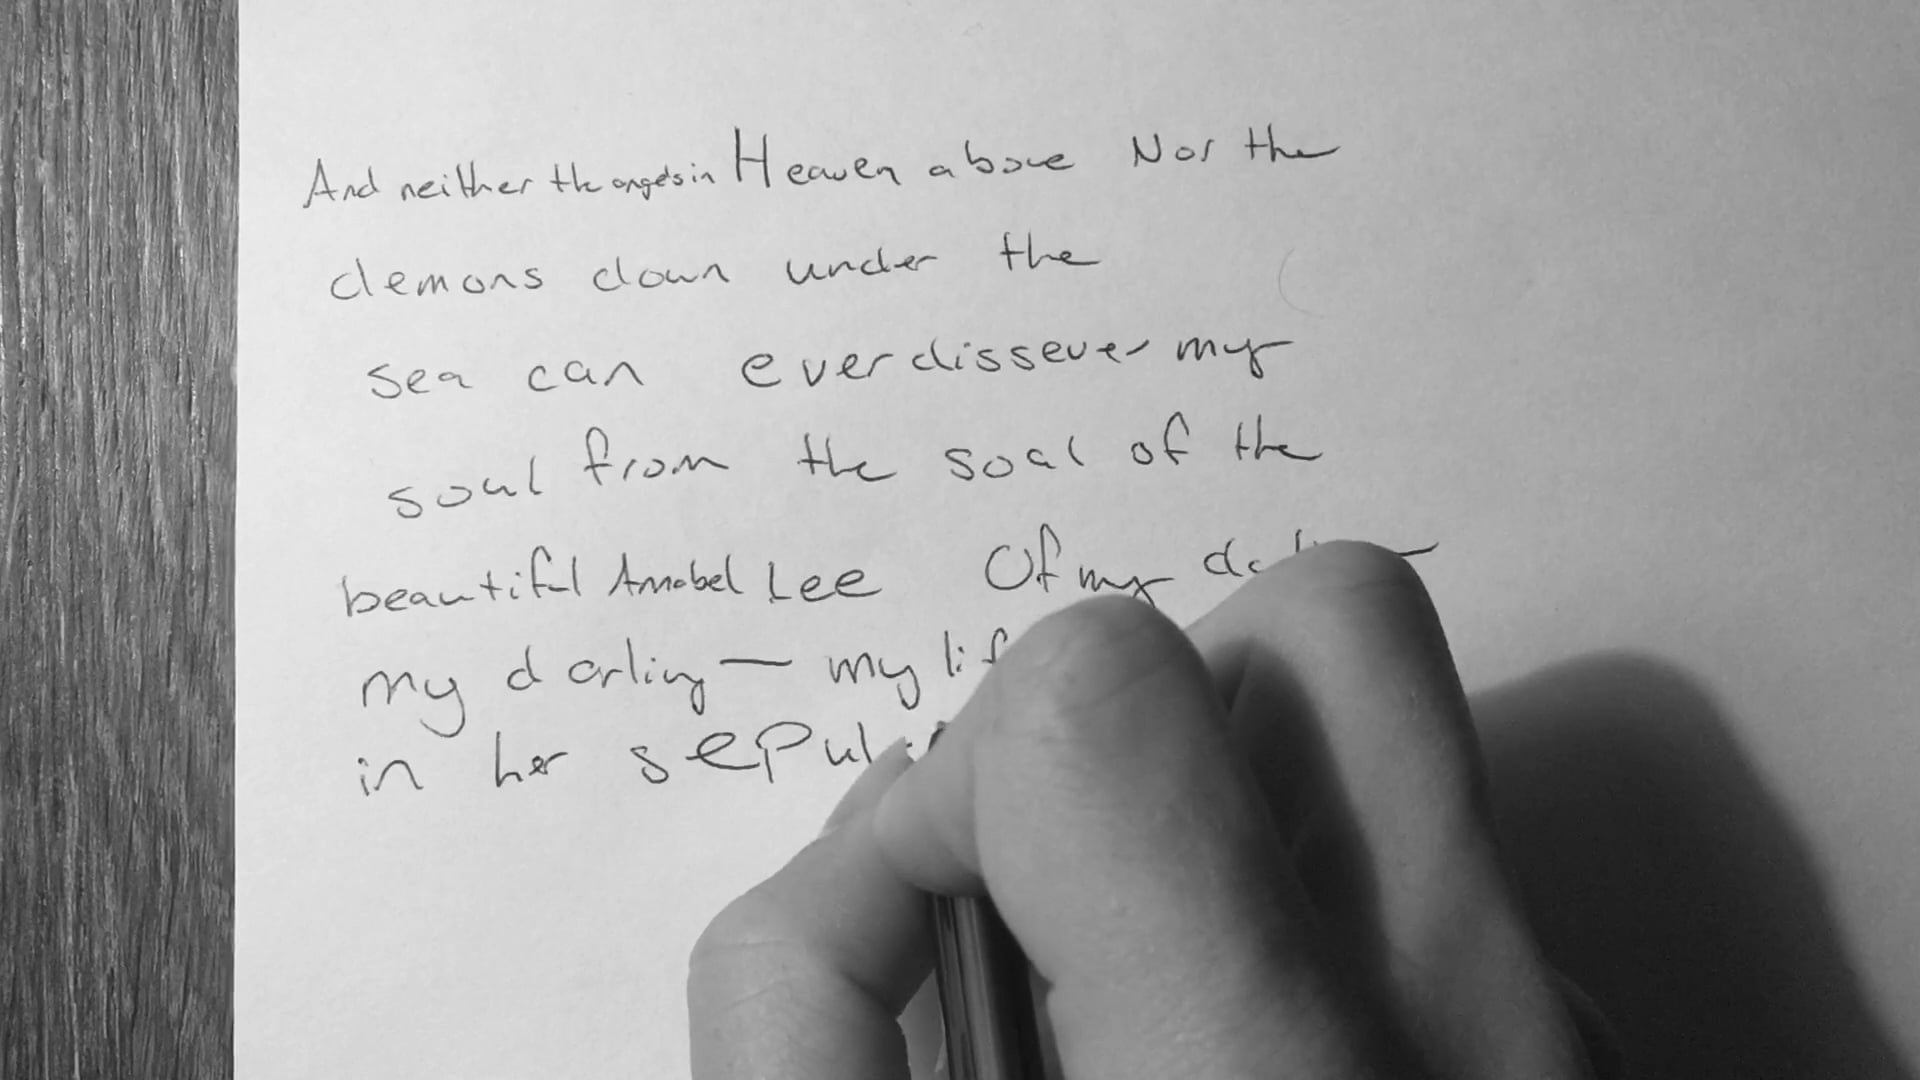 And neither the angels in Heaven above Nor the
demons down under the
sea can ever dissever my
soul from the soul of the
beautiful Annabel Lee Of my
my darling — my
in her